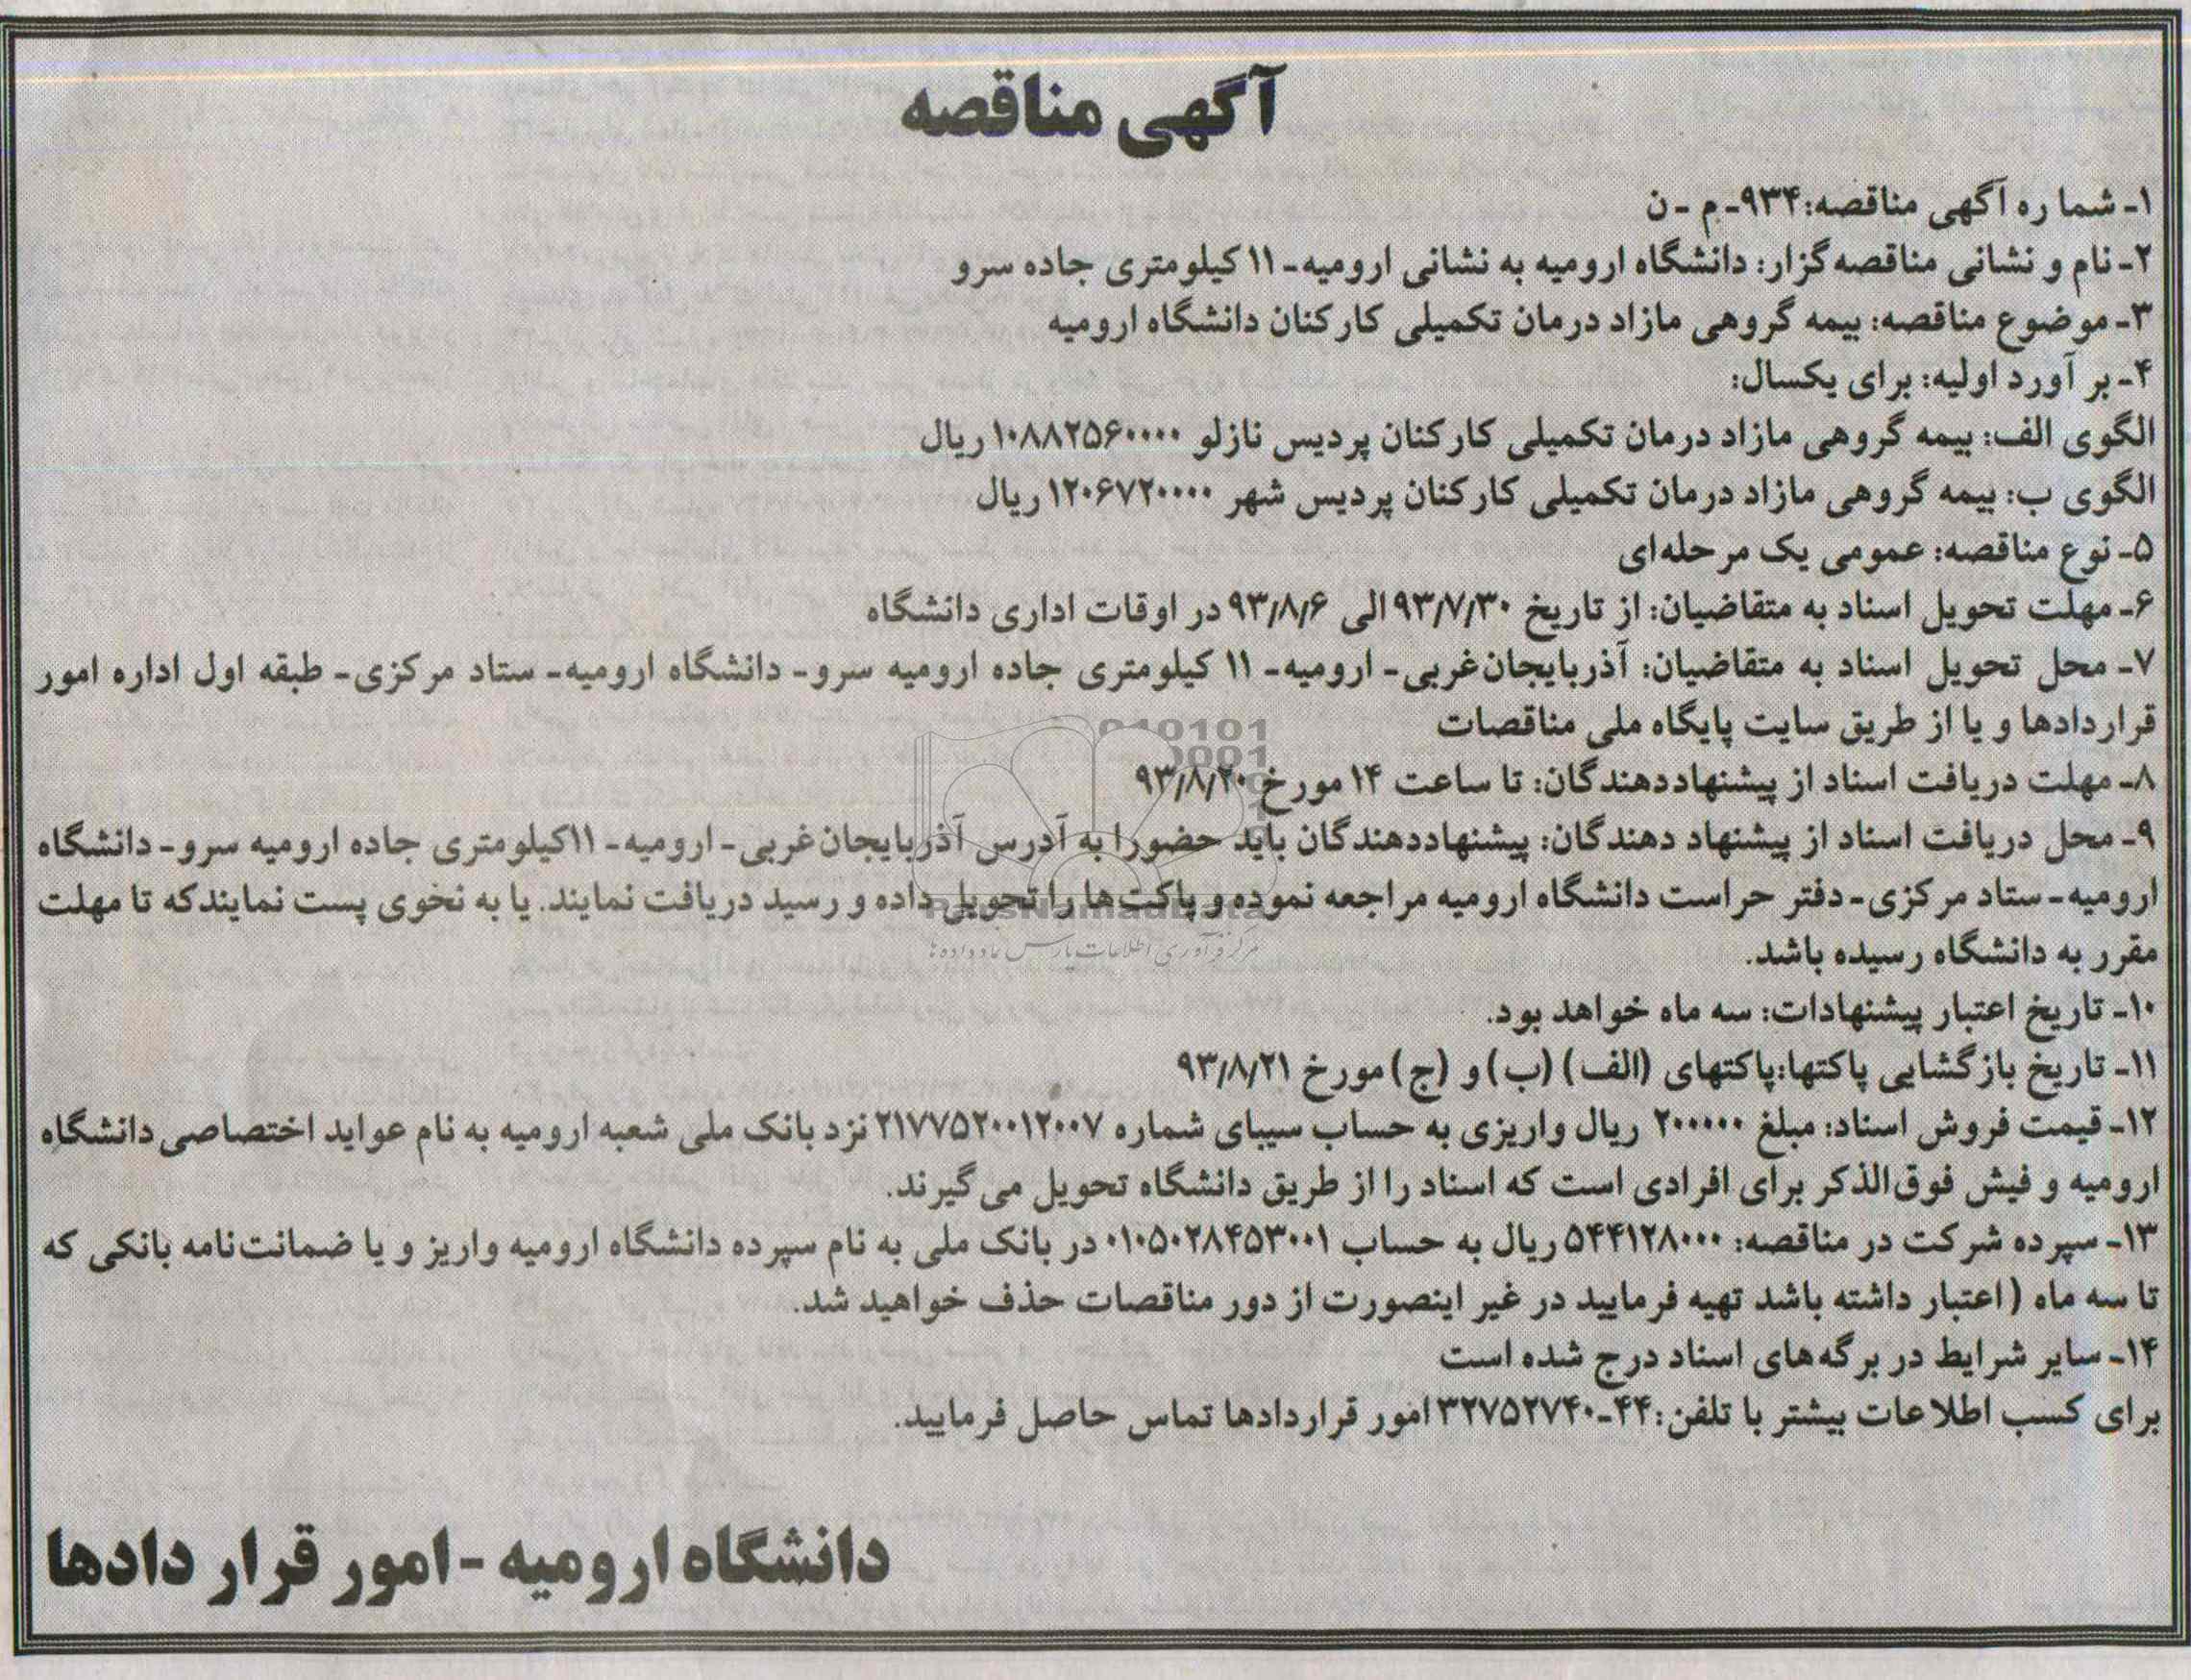 آگهی مناقصه
۱ـ شما ره آگهی مناقصه:۹۳۴ـ م ـ ن
۲ـ نام و نشانی مناقصه‌گزار: دانشگاه ارومیه به نشانی ارومیه ـ ۱۱ کیلومتری جاده سرو
۳ـ موضوع مناقصه: بیمه گروهی مازاد درمان تکمیلی کارکنان دانشگاه ارومیه
۴ـ بر آورد اولیه: برای یکسال:
الگوی الف: بیمه گروهی مازاد درمان تکمیلی کارکنان پردیس نازلو ۱۰۸۸۲۵۶۰۰۰۰ ریال
الگوی ب: بیمه گروهی مازاد درمان تکمیلی کارکنان پردیس شهر ۱۲۰۶۷۲۰۰۰۰ ریال
۵ـ نوع مناقصه: عمومی یک مرحله‌ای
۶ـ مهلت تحویل اسناد به متقاضیان: از تاریخ ۹۳/۷/۳۰ الی ۹۳/۸/۶ در اوقات اداری دانشگاه
۷ـ محل تحویل اسناد به متقاضیان: آذربایجان‌غربی ـ ارومیه ـ ۱۱ کیلومتری جاده ارومیه سرو ـ دانشگاه ارومیه ـ ستاد مرکزی ـ طبقه اول اداره امور
قراردادها و یا از طریق سایت پایگاه ملی مناقصات
۸ـ مهلت دریافت اسناد از پیشنهاددهندگان: تا ساعت ۱۴ مورخ ۹۳/۸/۲۰
۹ـ محل دریافت اسناد از پیشنهاد دهندگان: پیشنهاددهندگان باید حضورا به آدرس آذربایجان‌غربی ـ ارومیه ـ ۱۱کیلومتری جاده ارومیه سرو ـ دانشگاه
ارومیه ـ ستاد مرکزی ـ دفتر حراست دانشگاه ارومیه مراجعه نموده و پاکت‌ها را تحویل داده و رسید دریافت نمایند. یا به نخوی پست نمایندکه تا مهلت
مقرر به دانشگاه رسیده باشد.
۱۰ـ تاریخ اعتبار پیشنهادات: سه ماه خواهد بود.
۱۱ـ تاریخ بازگشایی پاکتها:پاکتهای (الف) (ب) و (ج) مورخ ۹۳/۸/۲۱
۱۲ـ قیمت فروش اسناد: مبلغ ۲۰۰۰۰۰ ریال واریزی به حساب سیبای شماره ۲۱۷۷۵۲۰۰۱۲۰۰۷ نزد بانک ملی شعبه ارومیه به نام عواید اختصاصی دانشگاه
ارومیه و فیش فوق‌الذکر برای افرادی است که اسناد را از طریق دانشگاه تحویل می‌گیرند.
۱۳ـ سپرده شرکت در مناقصه: ۵۴۴۱۲۸۰۰۰ ریال به حساب ۰۱۰۵۰۲۸۴۵۳۰۰۱ در بانک ملی به نام سپرده دانشگاه ارومیه واریز و یا ضمانت‌نامه بانکی که
تا سه ماه (اعتبار داشته باشد تهیه فرمایید در غیر اینصورت از دور مناقصات حذف خواهید شد.
۱۴ـ سایر شرایط در برگه‌های اسناد درج شده است
برای کسب اطلاعات بیشتر با تلفن: ۴۴ـ۳۲۷۵۲۷۴۰ امور قراردادها تماس حاصل فرمایید.
دانشگاه ارومیه - امور قرار دادها